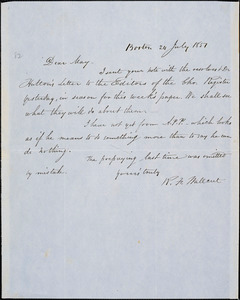 Boston 24 July 1851
Dear May.
I sent your note with the enclosed Dr
Hutton's Letter to the Editors of the Chr. Register
yesterday, in season for this week's paper. We shall see
what they will do about them.
I have not yet from A.P.P. which looks
as if he means to do something more than to say he can
do nothing.
The prepaying last time was omitted
by mistake.
Yours truly
R. F. Wallcut